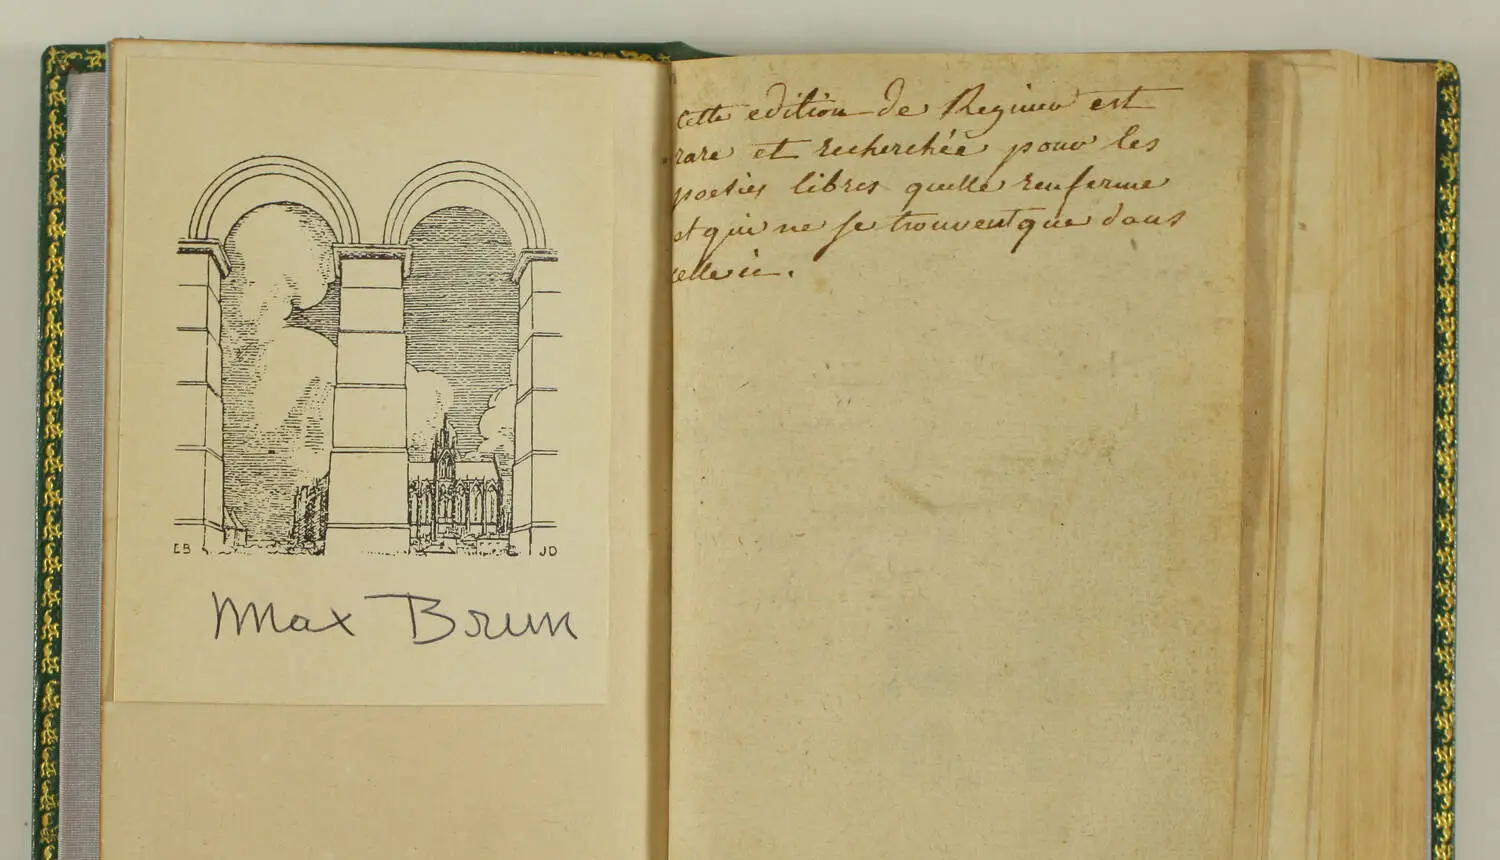 CB
JD
Max Brun
Cette edition de Regnier est
rare et recherchée pour les
poesies libres quelle renferme
et qui ne se trouvent que dans
celle ci.